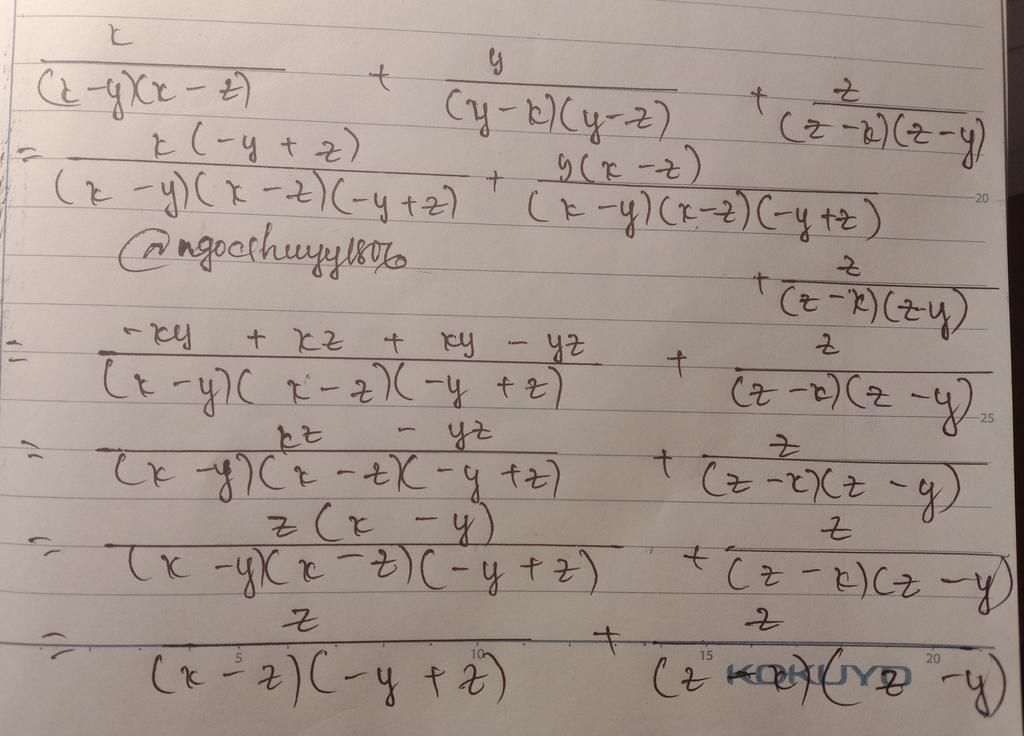 x/((x-y)(x-z)) + y/((y-x)(y-z)) + z/((z-x)(z-y))
= x(-y+z)/((x-y)(x-z)(-y+z)) + y(x-z)/((x-y)(x-z)(-y+z))
20
+ z/((z-x)(z-y))
= (-xy + xz + xy - yz)/((x-y)(x-z)(-y+z)) + z/((z-x)(z-y))
25
= (xz - yz)/((x-y)(x-z)(-y+z)) + z/((z-x)(z-y))
= z(x-y)/((x-y)(x-z)(-y+z)) + z/((z-x)(z-y))
= z/((x-z)(-y+z)) + z/((z-x)(z-y))
5 10 15 20
KOKUYO